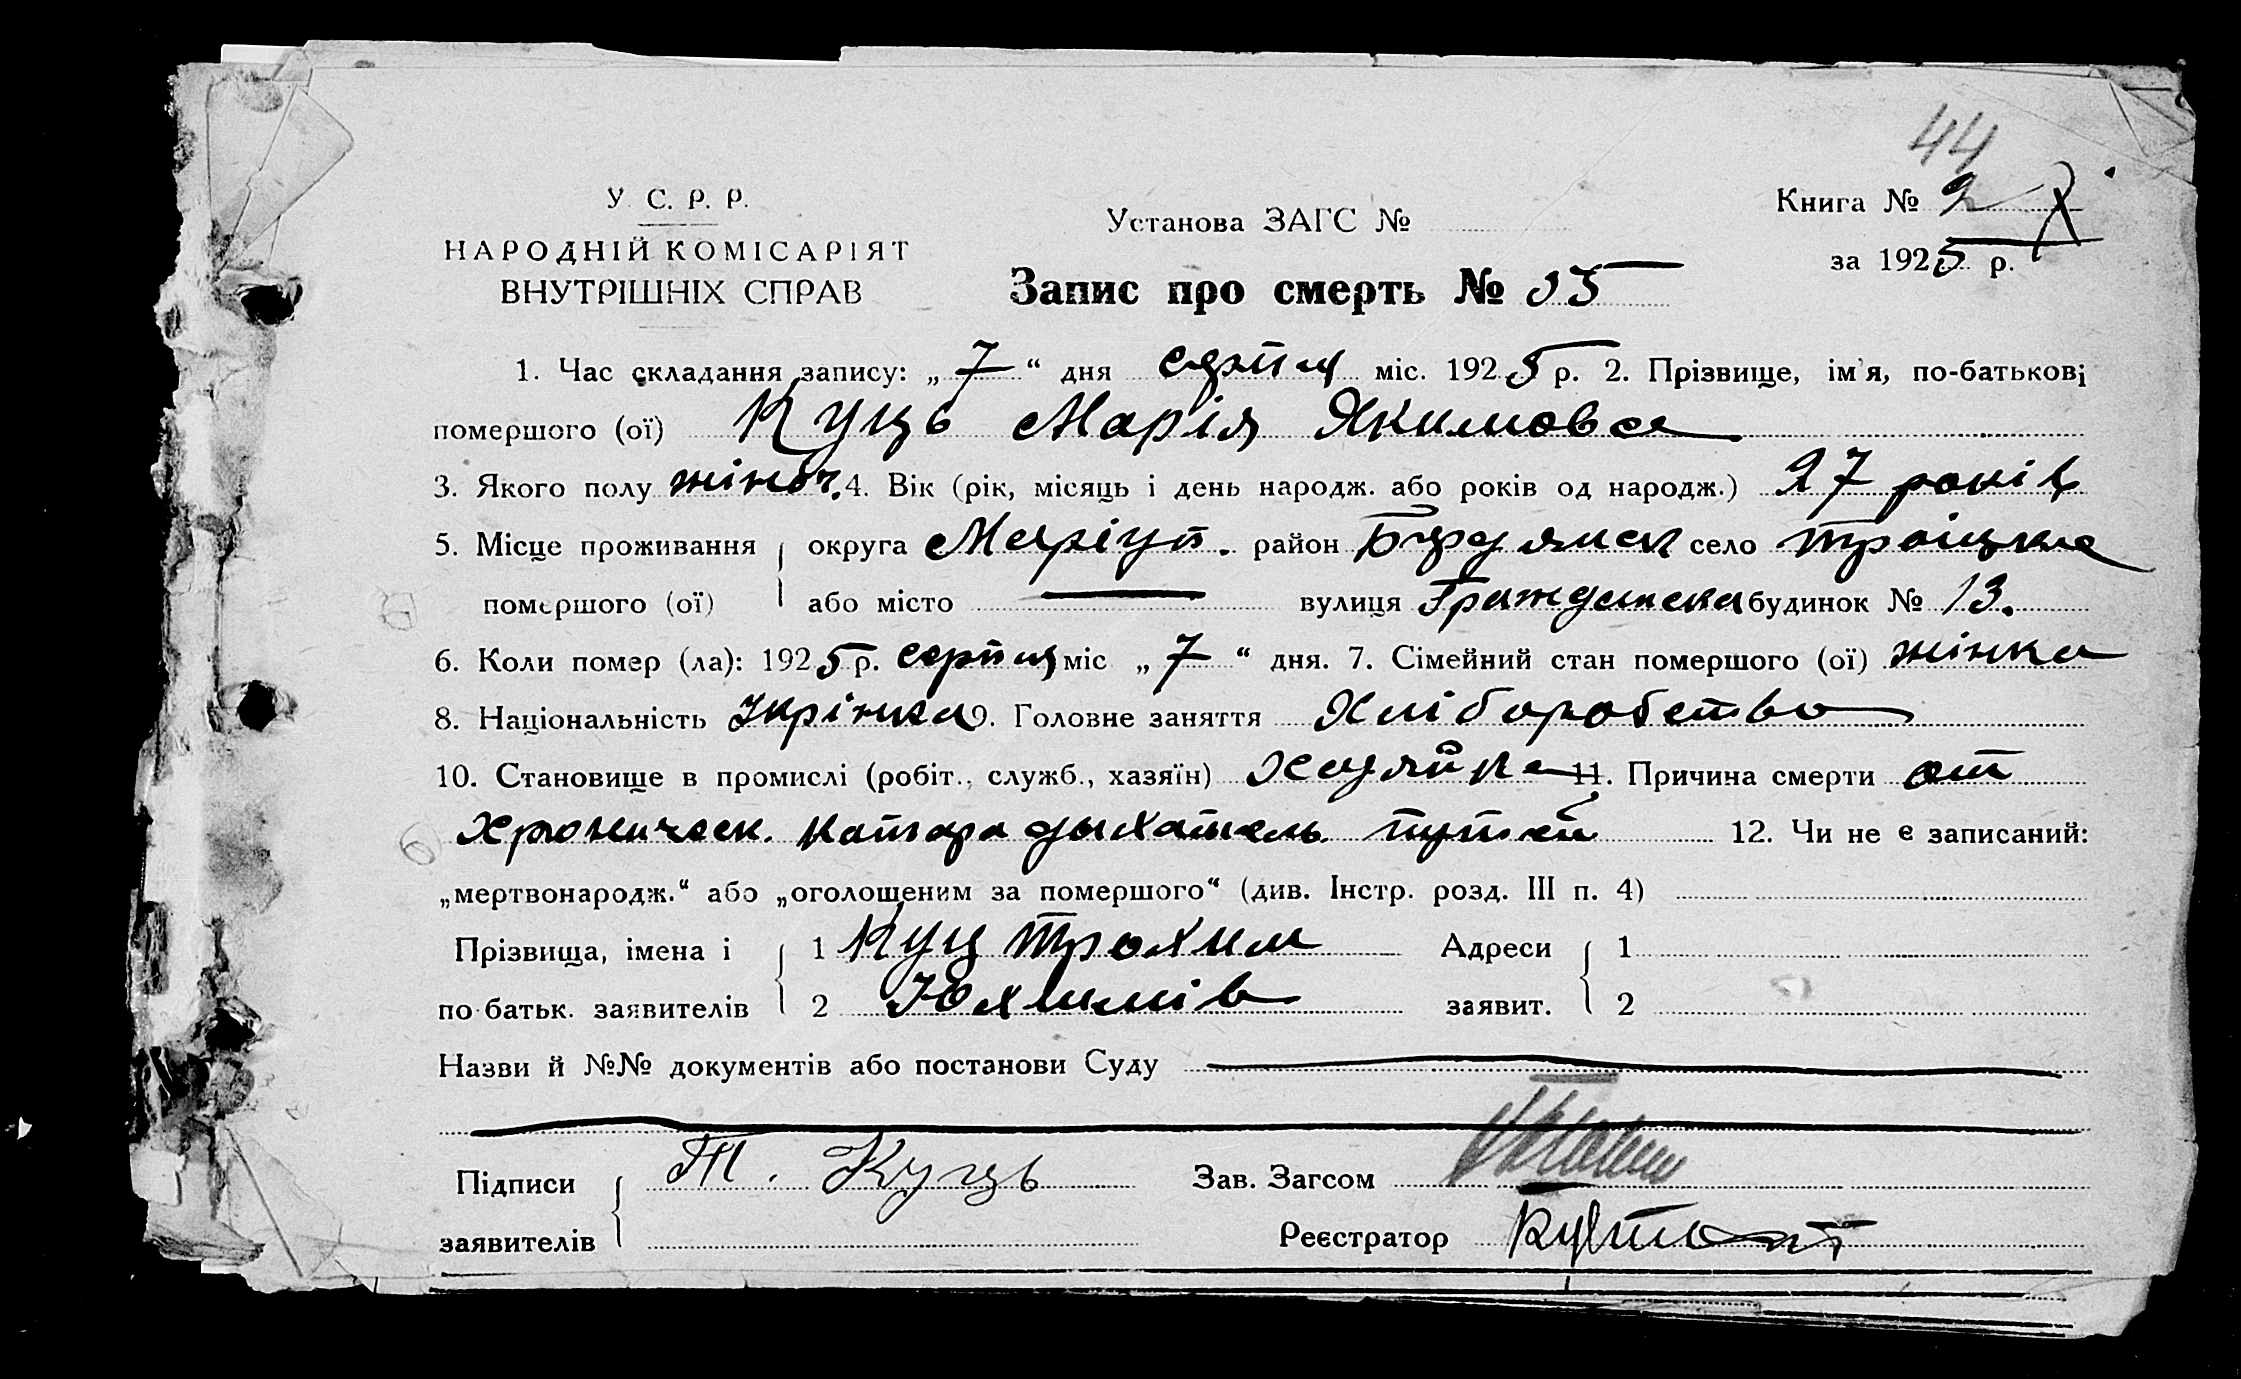 44
У. С. Р. Р.
НАРОДНІЙ КОМІСАРІЯТ
ВНУТРІШНІХ СПРАВ
Установа ЗАГС №
Книга № 2
за 1925 р.
Запис про смерть № 35
1. Час складання запису: „7“ дня серпня міс. 1925 р. 2. Прізвище, ім'я, по-батькові
помершого (ої) Куць Марія Якимовна
3. Якого полу жіноч. 4. Вік (рік, місяць і день народж. або років од народж.) 27 років
5. Місце проживання округа Маріуп. район Бердянск село Троїцьке
помершого (ої) або місто вулиця Гражданска будинок № 13.
6. Коли помер (ла): 1925 р. серпня міс „7“ дня. 7. Сімейний стан помершого (ої) жінка
8. Національність Укрінка 9. Головне заняття Хліборобство
10. Становище в промислі (робіт., служб., хазяїн) Хазяйка 11. Причина смерти от
хроническ. катара дыхатель. путей 12. Чи не є записаний:
„мертвонародж.“ або „оголошеним за помершого“ (див. Інстр. розд. III п. 4)
Прізвища, імена і 1 Куц Трохим Адреси 1
по-батьк. заявителів 2 Юхимів заявит. 2
Назви й №№ документів або постанови Суду
Підписи Т. Куць Зав. Загсом
заявителів Реєстратор